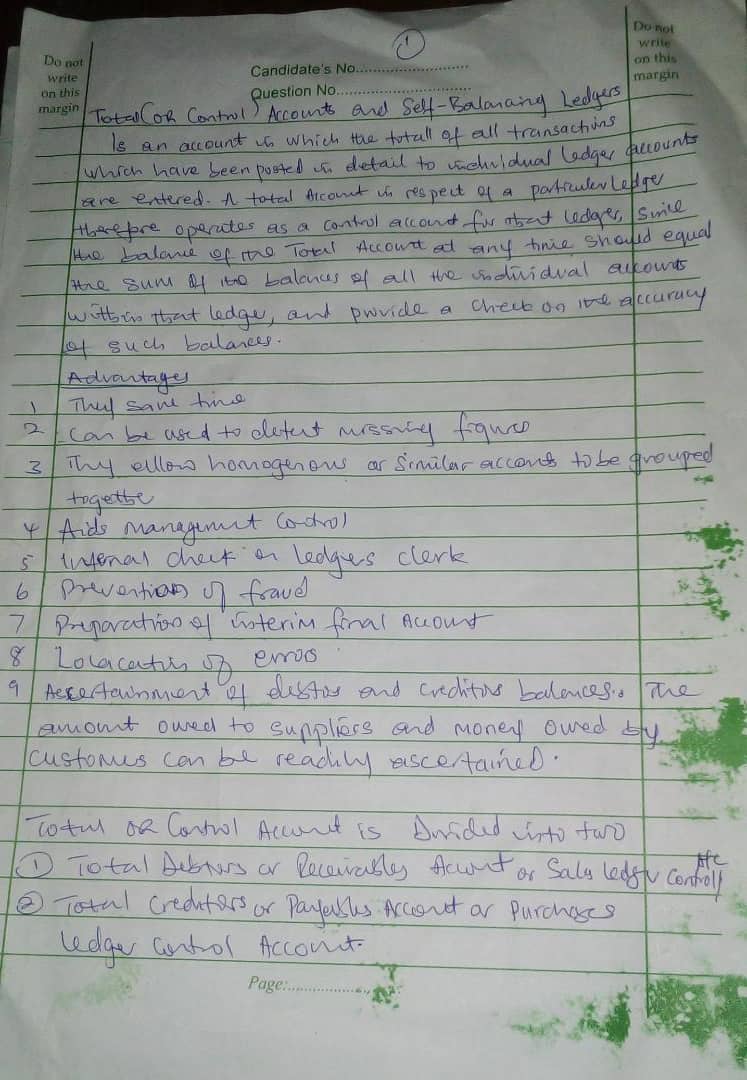 1
Do not
write
on this
margin
Candidate's No..............................
Question No..............................
Do not
write
on this
margin
Total (OR Control) Accounts and Self-Balancing Ledgers
Is an account in which the totall of all transactions
which have been posted in detail to individual ledger accounts
are entered. A total Account in respect of a particuler Ledger
therefore operates as a control account for that ledger, since
the balance of the Total Account at any time should equal
the sum of the balances of all the individual accounts
within that ledge, and provide a check on the accuracy
of such balances.
Advantages
1 They save time
2 Can be used to detect missing figures
3 They allow homogenous or similar accounts to be grouped
together
4 Aids management Control
5 Internal check on ledgers clerk
6 Prevention of fraud
7 Preparation of interim final Account
8 Lolacation of errors
9 Ascertainment of debtors and creditors balances. The
amount owed to suppliers and money owed by
customers can be readily ascertained.
Total OR Control Account is Divided into two
1 Total Debtors or Receivables Account or Sales ledger Control A/c
2 Total Creditors or Payables Account or Purchases
Ledger Control Account.
Page:....................